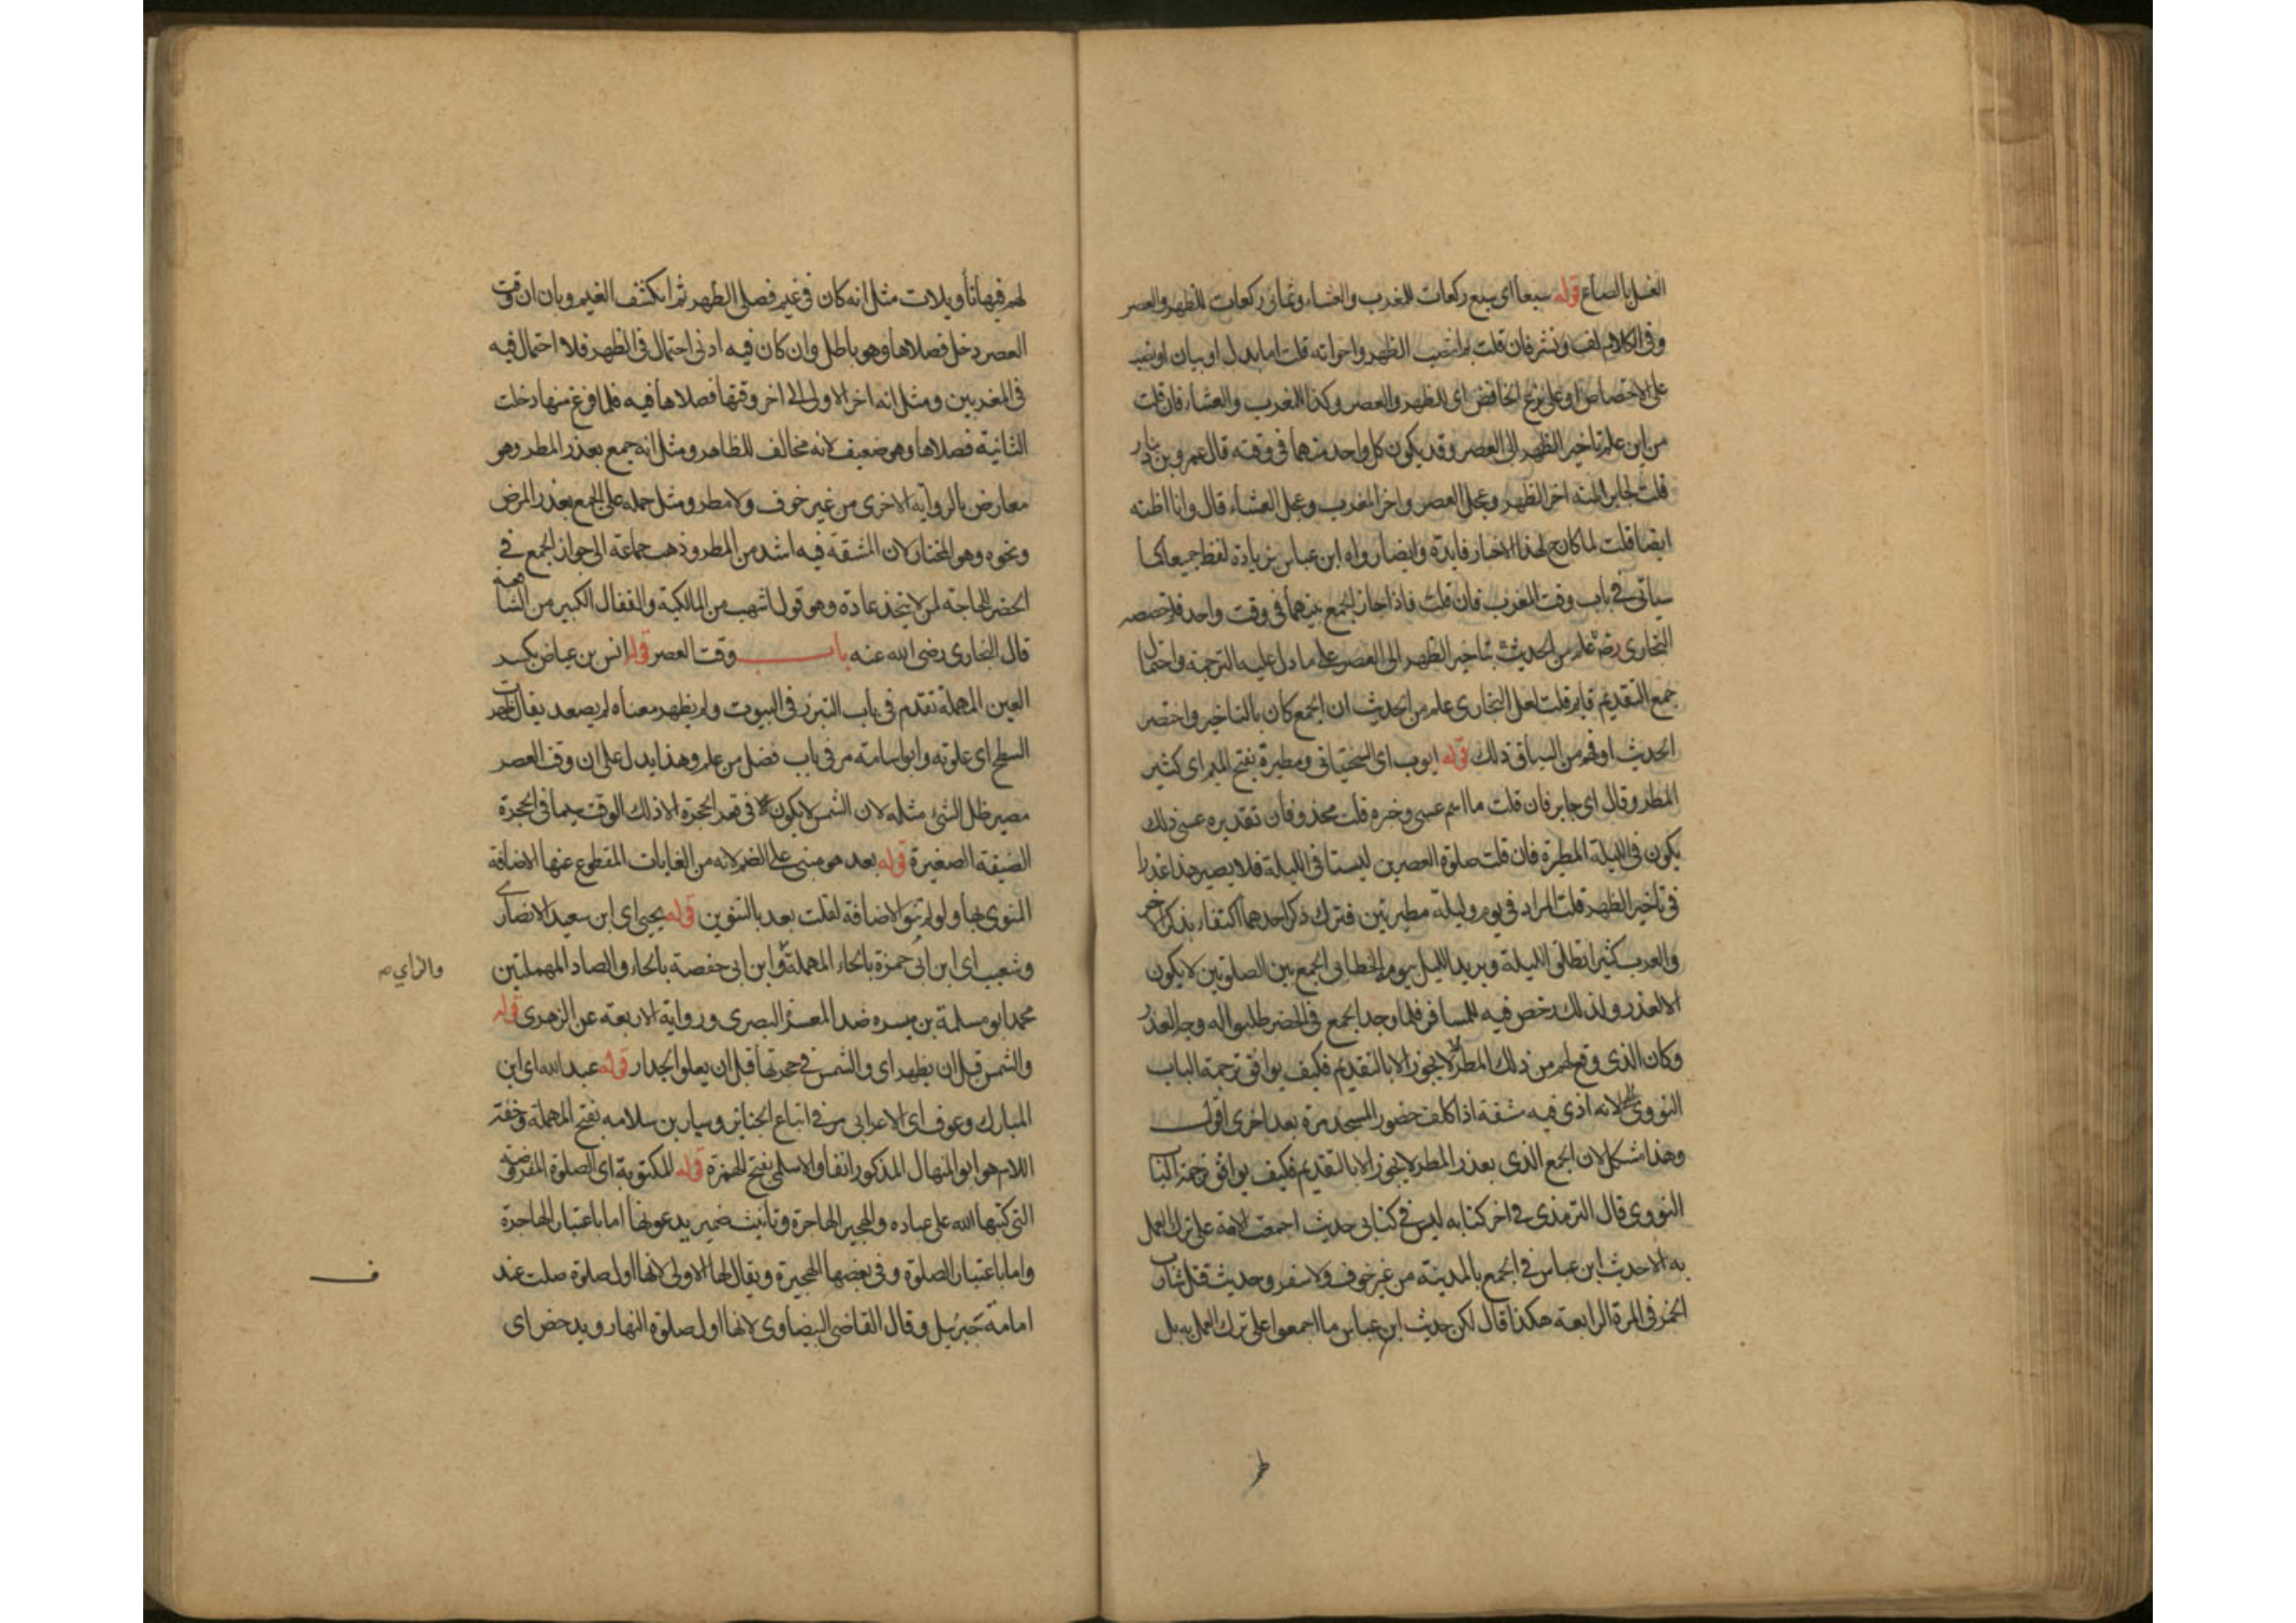 الغسل بالصاع قوله سبعا اى سبع ركعات للمغرب والعشاء وثمانى ركعات للظهر والعصر
وفى الكلام لف ونشر فان قلت بم انتصب الظهر واخواته قلت اما بدل او بيان او نصب
على الاختصاص او على نزع الخافض اى للظهر والعصر وكذا للمغرب والعشاء فان قلت
من اين علم تاخير الظهر الى العصر وقد يكون كل واحد منهما فى وقته قال عمرو بن دينار
قلت لجابر اظنه اخر الظهر وعجل العصر واخر المغرب وعجل العشاء قال وانا اظنه
ايضا قلت لما كان لهذا الاخبار فايدة وايضا رواه ابن عباس بزيادة لفظ جميعا كما
سياتى فى باب وقت المغرب فان قلت فاذا جاز الجمع بينهما فى وقت واحد فلم خصصه
البخارى رضه علم من الحديث بتاخير الظهر الى العصر على ما دل عليه الترجمة واحتمال
جمع التقديم قايم قلت لعل البخارى علم من الحديث ان الجمع كان بالتاخير واختصر
الحديث او فهم من السياق ذلك قوله ايوب اى السختيانى ومطيرة بفتح الميم اى كثير
المطر وقال اى جابر فان قلت ما اسم عسى وخبره قلت محذوفان تقديره عسى ذلك
يكون فى الليلة المطيرة فان قلت صلوة العصرين ليستا فى الليلة فلا يصير هذا عذرا
فى تاخير الظهر قلت المراد فى يوم وليلة مطيرتين فترك ذكر احدهما اكتفاء بذكر الاخر
والعرب كثيرا تطلق الليلة وتريد الليل بيومه الخطابى الجمع بين الصلوتين لا يكون
الا لعذر ولذلك رخص فيه للمسافر فلما وجد الجمع فى الحضر طلبوا له وجه العذر
وكان الذى وقع لهم من ذلك المطر لا يجوز الا بالتقديم فكيف يوافق ترجمة الباب
النووى لانه اذى فيه مشقة اذا كلف حضور المسجد مرة بعد اخرى اقول
وهذا مشكل لان الجمع الذى بعذر المطر لا يجوز الا بالتقديم فكيف يوافق ترجمة الباب
النووى قال الترمذى فى اخر كتابه ليس فى كتابى حديث اجمعت الامة على ترك العمل
به الا حديث ابن عباس فى الجمع بالمدينة من غير خوف ولا سفر وحديث قتل شارب
الخمر فى المرة الرابعة هكذا قال لكن حديث ابن عباس ما اجمعوا على ترك العمل به بل
لهم فيها تأويلات مثل انه كان فى غيم فصلى الظهر ثم انكشف الغيم وبان ان وقت
العصر دخل فصلاها وهو باطل وان كان فيه ادنى احتمال فى الظهر فلا احتمال فيه
فى المغربين ومثل انه اخر الاولى الى اخر وقتها فصلاها فيه فلما فرغ منها دخلت
الثانية فصلاها وهو ضعيف لانه مخالف للظاهر ومثل انه جمع بعذر المطر وهو
معارض بالرواية الاخرى من غير خوف ولا مطر ومثل حمله على الجمع بعذر المرض
ونحوه وهو المختار لان المشقة فيه اشد من المطر وذهب جماعة الى جواز الجمع فى
الحضر للحاجة لمن لا يتخذ عادة وهو قول اشهب من المالكية والقفال الكبير من الشافعية
قال البخارى رضى الله عنه باب وقت العصر قوله انس بن عياض بكسر
العين المهملة تقدم فى باب التبرز فى البيوت ولم يظهر معناه لم يصعد يقال ظهرت
السطح اى علوته وابو اسامة مر فى باب فضل من علم وهذا يدل على ان وقت العصر
مصير ظل الشئ مثله لان الشمس لا يكون فى قعر الحجرة الا ذلك الوقت سيما فى الحجرة
الضيقة الصغيرة قوله بعد هو مبنى على الضم لانه من الغايات المقطوع عنها الاضافة
المنوى بها ولو لم تنو الاضافة لقلت بعد بالتنوين قوله يحيى اى ابن سعيد الانصارى
وشعيب اى ابن ابى حمزة بالحاء المهملة وابن ابى حفصة بالحاء والصاد المهملتين
والزاي صح
محمد ابو سلمة بن ميسره ضد المعسر البصرى ورواية الاربعة عن الزهرى قوله
والشمس قبل ان يظهر اى والشمس فى حجرتها قبل ان يعلو الجدار قوله عبد الله اى ابن
المبارك وعوف اى الاعرابى مر فى اتباع الجنايز وسيار بن سلامه بفتح المهملة وخفة
اللام هو ابو المنهال المذكور انفا والاسلمى بفتح الهمزة قوله المكتوبة اى الصلوة المفروضة
التى كتبها الله على عباده والهجير الهاجرة وتانيث ضمير يدعونها اما باعتبار الهاجرة
واما باعتبار الصلوة وفى بعضها الهجيرة ويقال لها الاولى لانها اول صلوة صلت عند
امامة جبرئيل وقال القاضى البيضاوى لانها اول صلوة النهار ويدحض اى